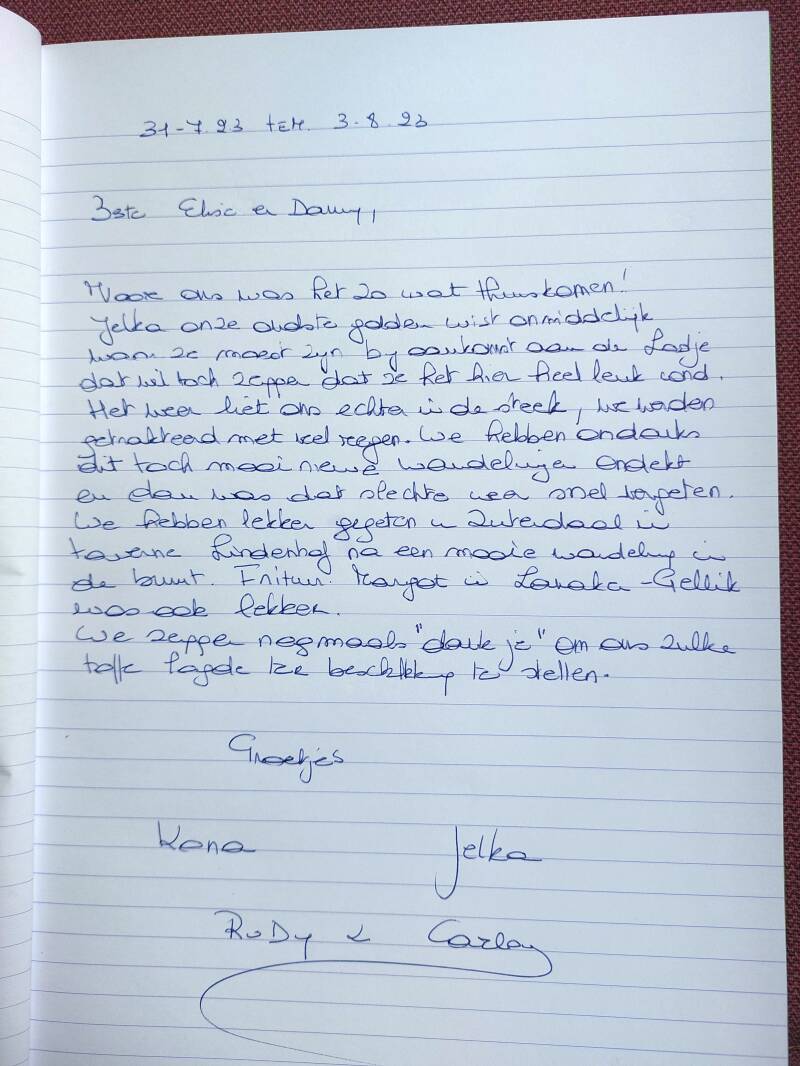 31-7.23 tEM. 3.8.23
Beste Elvic en Danny,
Voor ons was het zo wat thuiskomen!
Jelka onze oudste golden wist onmiddelijk
waar ze moest zijn bij aankomst aan de Lodje
dat wil toch zeggen dat ze het hier heel leuk vond.
Het weer liet ons echter in de steek, we werden
getrakteerd met veel regen. We hebben ondanks
dit toch mooi nieuwe wandelingen ondekt
en dan was dat slechte weer snel vergeten.
We hebben lekker gegeten in Zutendaal in
taverne Lindenhof na een mooie wandeling in
de buurt. Frituur Margot in Lanaka-Gellik
was ook lekker.
We zeggen nogmaals "dank je" om ons zulke
toffe logde ter beschikking te stellen.
Groetjes
Kona Jelka
RuDy & Carlay